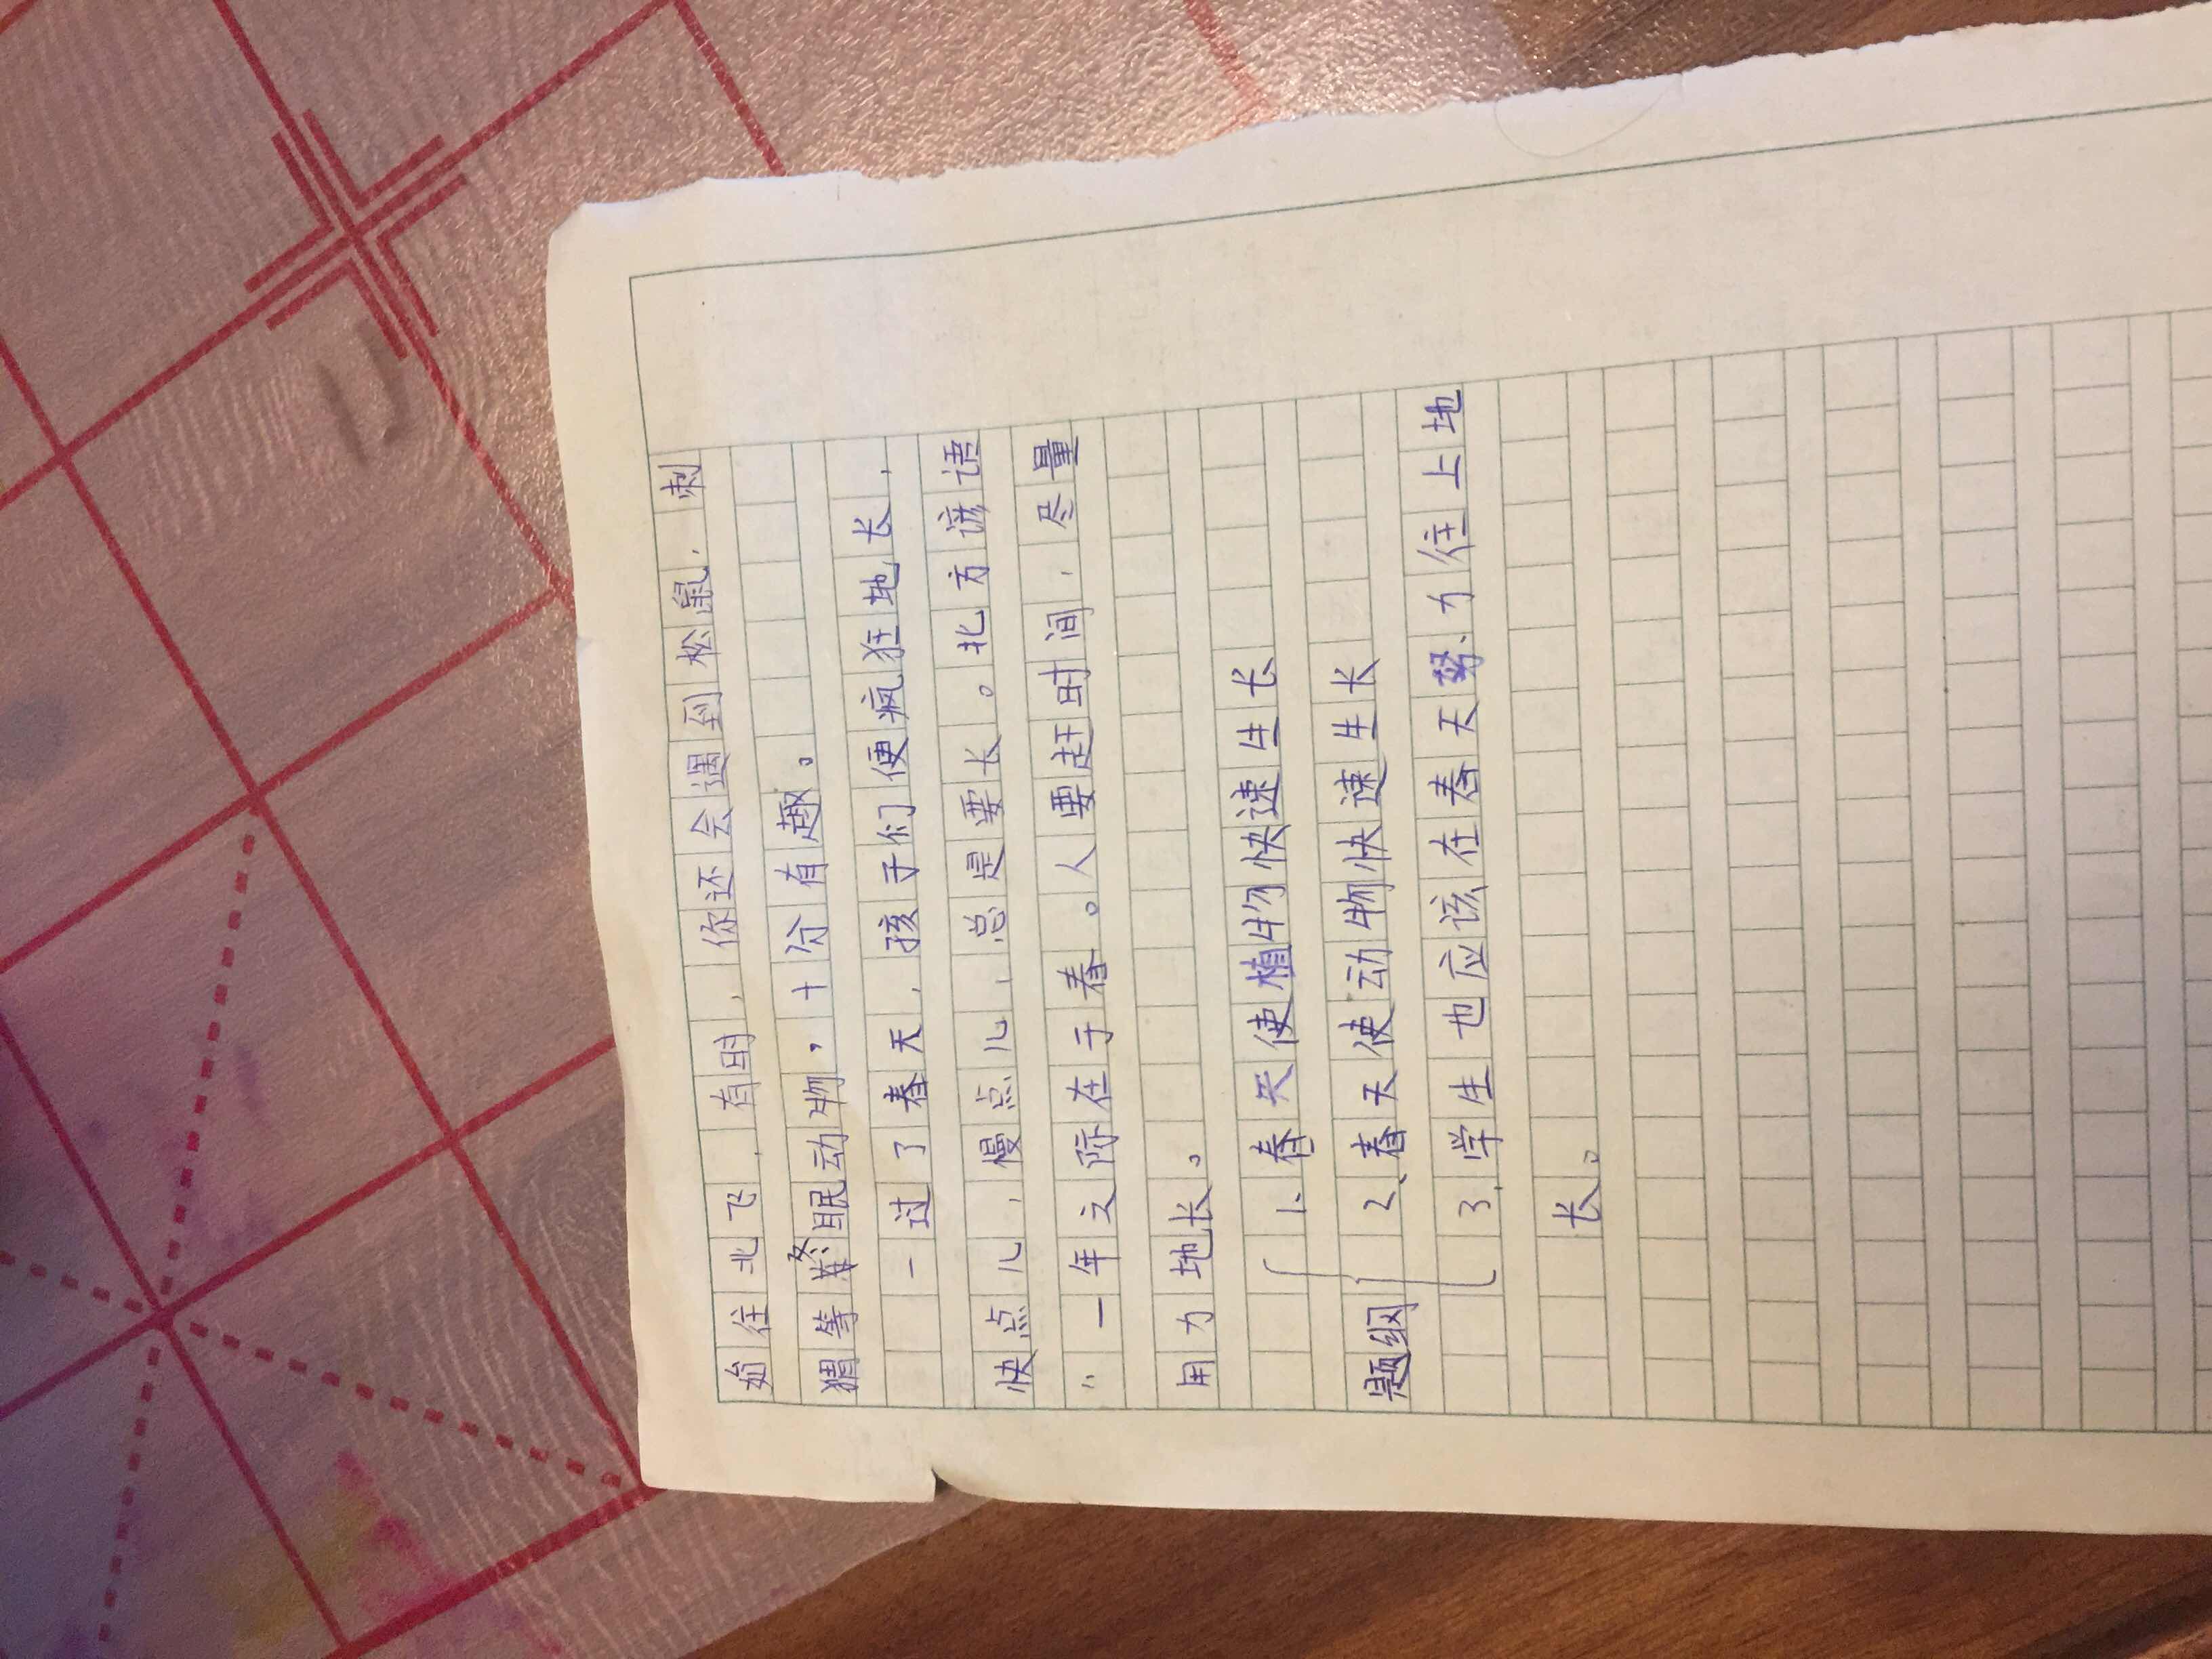 始往北飞,有时,你还会遇到松鼠,刺
猬等冬眠动物,十分有趣。
一过了春天,孩子们便疯狂地长,
快点儿,慢点儿,总是要长。北方谚语
“一年之际在于春。人要赶时间,尽量
用力地长。
1、春天使植物快速生长
题纲 2、春天使动物快速生长
3、学生也应该在春天努力往上地
长。